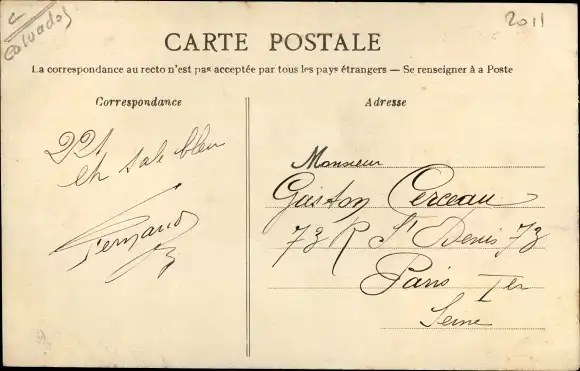 C
Calvados
2011
CARTE POSTALE
La correspondance au recto n'est pas acceptée par tous les pays étrangers — Se renseigner à a Poste
Correspondance
Adresse
221
en sale bleu
Fernand
Monsieur
Gaston Cerceau
73 R St Denis 73
Paris Ier
Seine